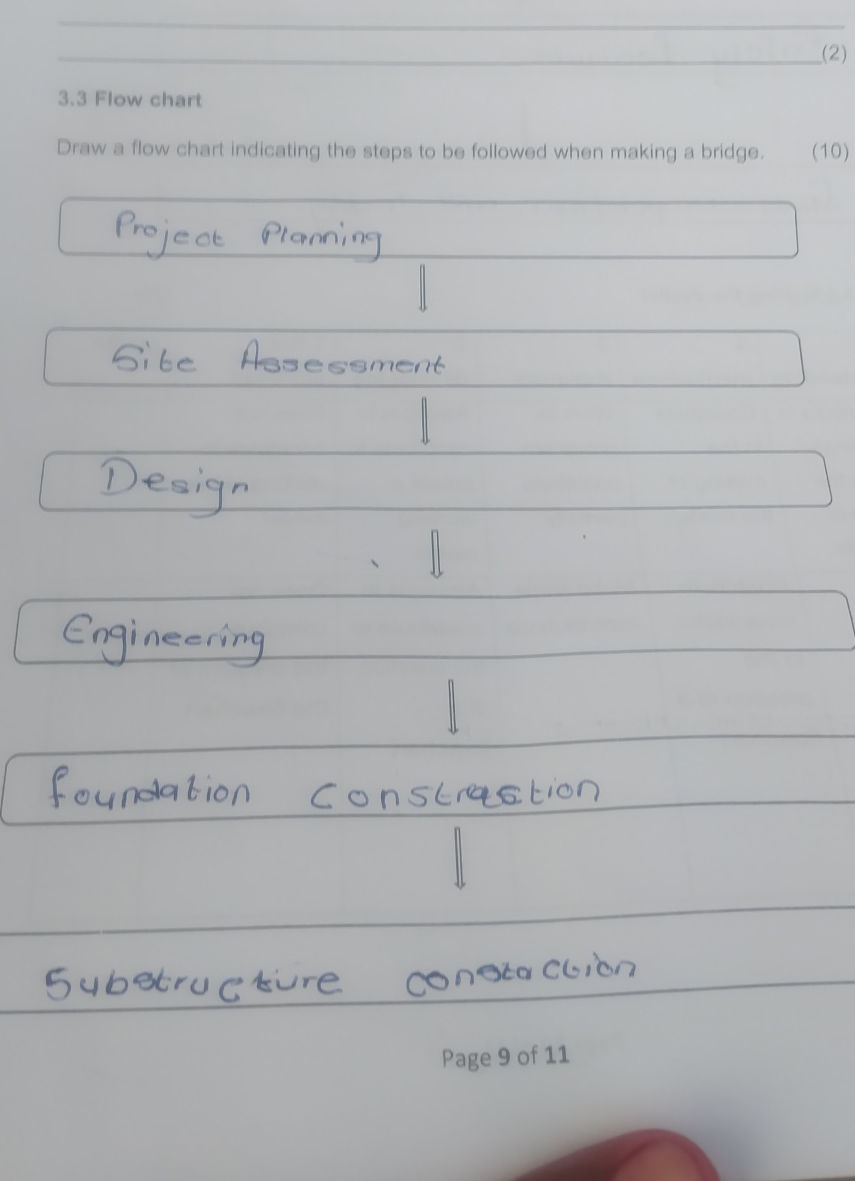 (2)
3.3 Flow chart
Draw a flow chart indicating the steps to be followed when making a bridge. (10)
Project Planning
Site Assessment
Design
Engineering
foundation
Substructure
Page 9 of 11